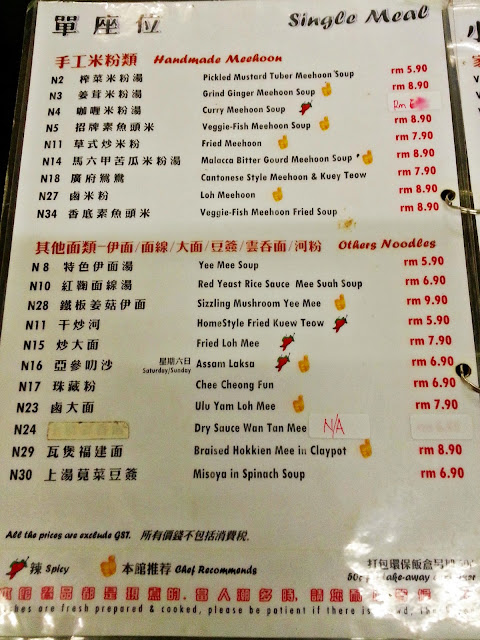 單座位 Single Meal
手工米粉類 Handmade Meehoon
N2 榨菜米粉湯 Pickled Mustard Tuber Meehoon Soup rm 5.90
N3 姜茸米粉湯 Grind Ginger Meehoon Soup rm 8.90
N4 咖喱米粉湯 Curry Meehoon Soup Rm
N5 招牌素魚頭米 Veggie-Fish Meehoon Soup rm 8.90
N11 草式炒米粉 Fried Meehoon rm 7.90
N14 馬六甲苦瓜米粉湯 Malacca Bitter Gourd Meehoon Soup rm 8.90
N18 廣府鴛鴦 Cantonese Style Meehoon & Kuey Teow rm 7.90
N27 鹵米粉 Loh Meehoon rm 8.90
N34 香底素魚頭米 Veggie-Fish Meehoon Fried Soup rm 8.90
其他面類-伊面/面線/大面/豆簽/雲吞面/河粉 Others Noodles
N8 特色伊面湯 Yee Mee Soup rm 5.90
N10 紅麴面線湯 Red Yeast Rice Sauce Mee Suah Soup rm 6.90
N28 鐵板姜菇伊面 Sizzling Mushroom Yee Mee rm 9.90
N11 干炒河 HomeStyle Fried Kuew Teow rm 5.90
N15 炒大面 Fried Loh Mee rm 7.90
N16 亞參叻沙 星期六日 Saturday/Sunday Assam Laksa rm 6.90
N17 珠藏粉 Chee Cheong Fun rm 6.90
N23 鹵大面 Ulu Yam Loh Mee rm 7.90
N24 Dry Sauce Wan Tan Mee N/A
N29 瓦煲福建面 Braised Hokkien Mee in Claypot rm 8.90
N30 上湯莧菜豆簽 Misoya in Spinach Soup rm 6.90
All the prices are exclude GST. 所有價錢不包括消費稅.
辣 Spicy 本館推荐 Chef Recommends 打包環保飯盒
take-away
are fresh prepared & cooked, please be patient if there is